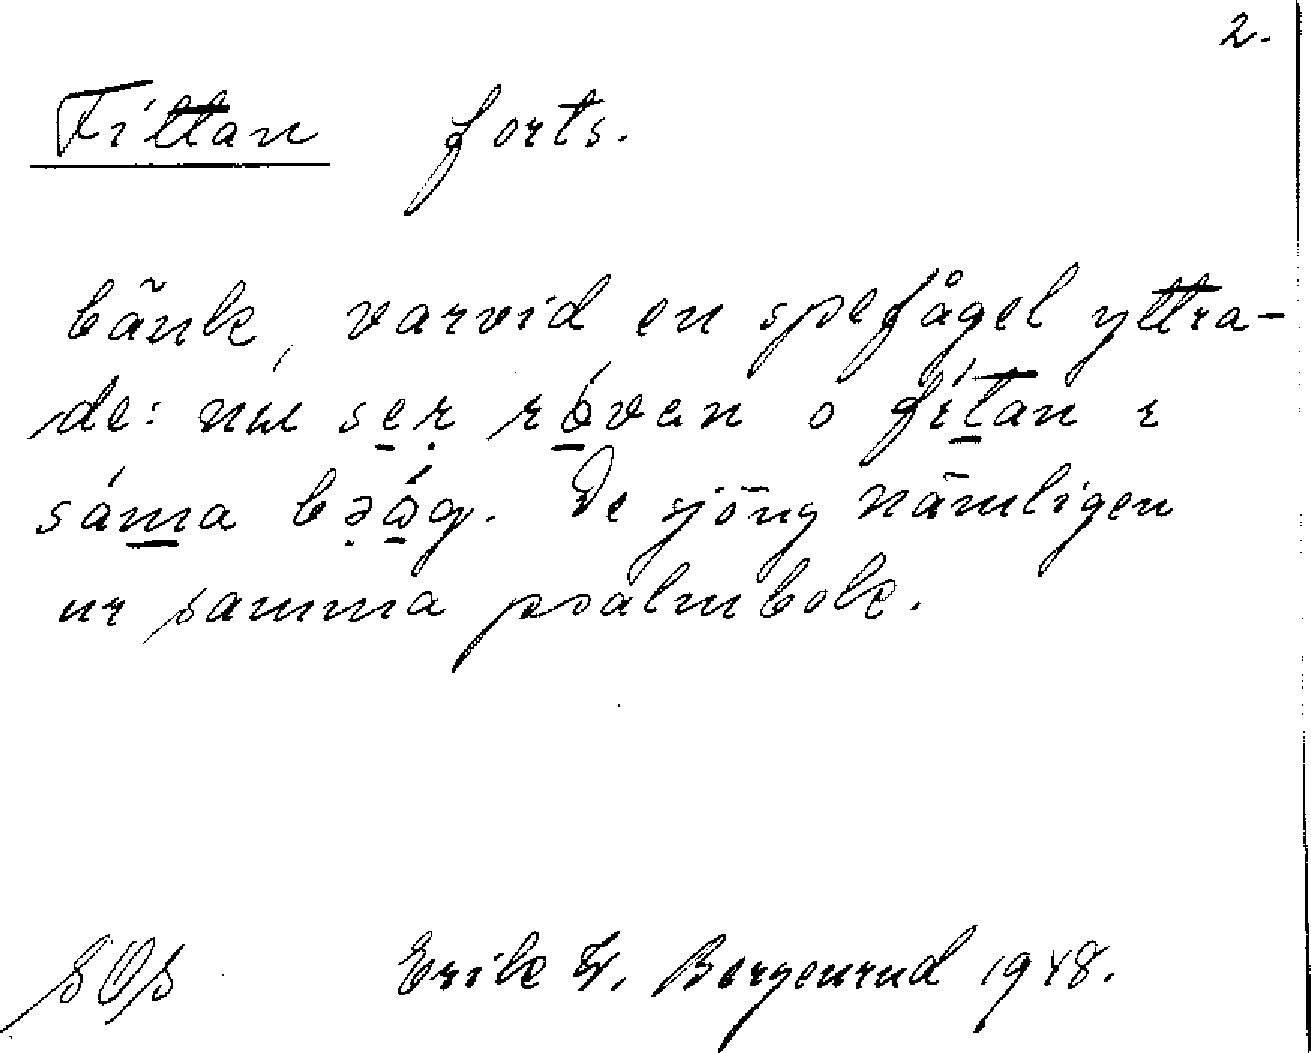 2.
Fittan forts.
bänk, varvid en spefågel yttra-
de: nú ser róven o fítan i
sáma bəóg. De sjöng nämligen
ur samma psalmbok.
SOS Erik W. Borgenrud 1948.